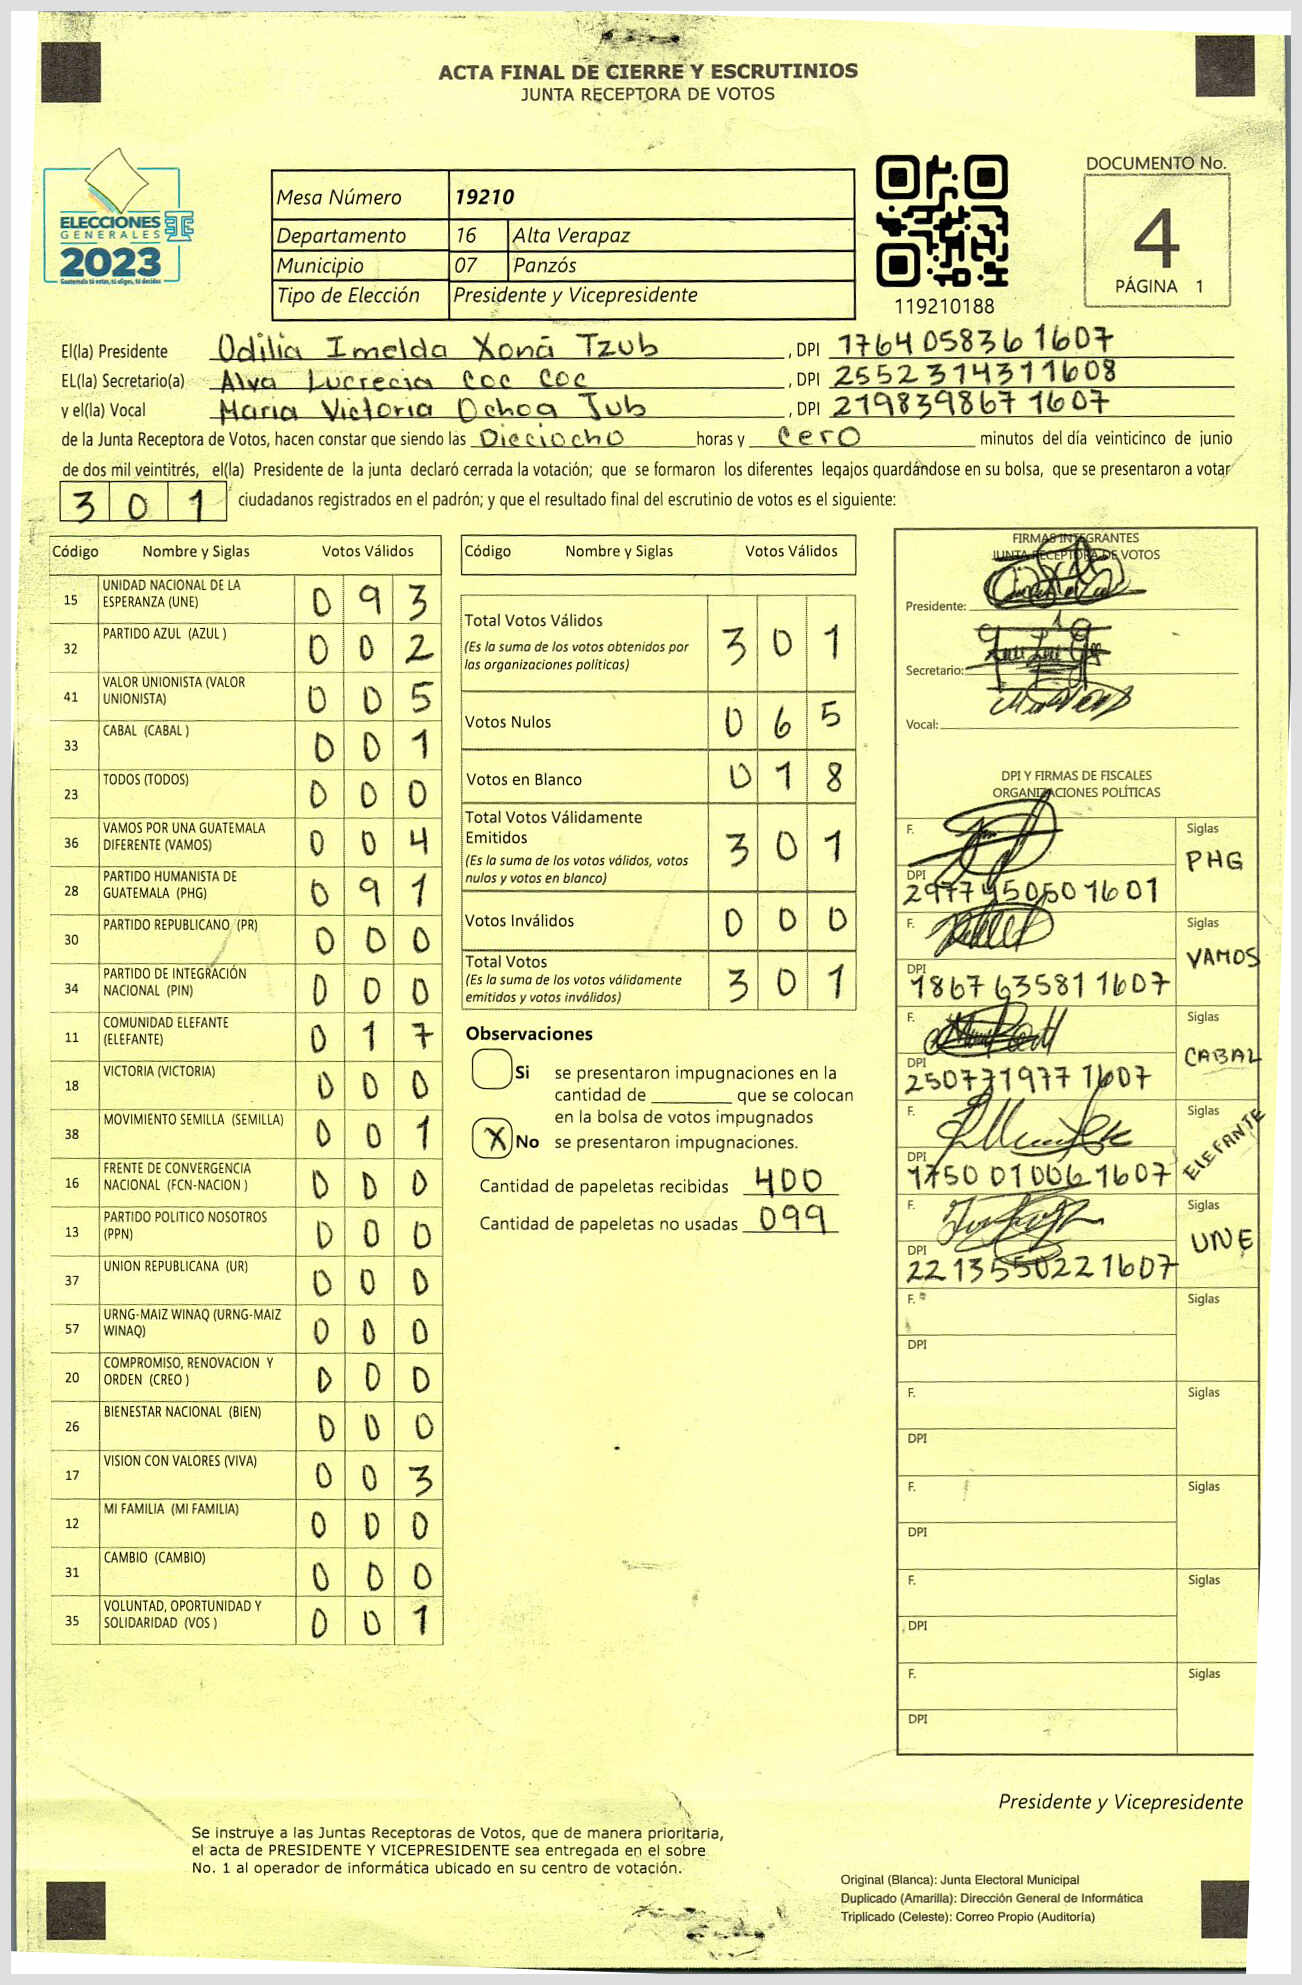 ACTA FINAL DE CIERRE Y ESCRUTINIOS
JUNTA RECEPTORA DE VOTOS
ELECCIONES
GENERALES
2023
Guatemala tú votas, tú eliges, tú decides
Mesa Número 19210
Departamento 16 Alta Verapaz
Municipio 07 Panzós
Tipo de Elección Presidente y Vicepresidente
119210188
DOCUMENTO No.
4
PÁGINA 1
El(la) Presidente Odilia Imelda Xoná Tzub , DPI 1764 05836 1607
EL(la) Secretario(a) Alva Lucrecia Coc Coc , DPI 2552314311608
y el(la) Vocal Maria Victoria Ochoa Tub , DPI 219839867 1607
de la Junta Receptora de Votos, hacen constar que siendo las Dieciocho horas y cero minutos del día veinticinco de junio
de dos mil veintitrés, el(la) Presidente de la junta declaró cerrada la votación; que se formaron los diferentes legajos guardándose en su bolsa, que se presentaron a votar
3 0 1 ciudadanos registrados en el padrón; y que el resultado final del escrutinio de votos es el siguiente:
Código Nombre y Siglas Votos Válidos
15 UNIDAD NACIONAL DE LA ESPERANZA (UNE) 0 9 3
32 PARTIDO AZUL (AZUL ) 0 0 2
41 VALOR UNIONISTA (VALOR UNIONISTA) 0 0 5
33 CABAL (CABAL ) 0 0 1
23 TODOS (TODOS) 0 0 0
36 VAMOS POR UNA GUATEMALA DIFERENTE (VAMOS) 0 0 4
28 PARTIDO HUMANISTA DE GUATEMALA (PHG) 0 9 1
30 PARTIDO REPUBLICANO (PR) 0 0 0
34 PARTIDO DE INTEGRACIÓN NACIONAL (PIN) 0 0 0
11 COMUNIDAD ELEFANTE (ELEFANTE) 0 1 7
18 VICTORIA (VICTORIA) 0 0 0
38 MOVIMIENTO SEMILLA (SEMILLA) 0 0 1
16 FRENTE DE CONVERGENCIA NACIONAL (FCN-NACION ) 0 0 0
13 PARTIDO POLITICO NOSOTROS (PPN) 0 0 0
37 UNION REPUBLICANA (UR) 0 0 0
57 URNG-MAIZ WINAQ (URNG-MAIZ WINAQ) 0 0 0
20 COMPROMISO, RENOVACION Y ORDEN (CREO ) 0 0 0
26 BIENESTAR NACIONAL (BIEN) 0 0 0
17 VISION CON VALORES (VIVA) 0 0 3
12 MI FAMILIA (MI FAMILIA) 0 0 0
31 CAMBIO (CAMBIO) 0 0 0
35 VOLUNTAD, OPORTUNIDAD Y SOLIDARIDAD (VOS ) 0 0 1
Código Nombre y Siglas Votos Válidos
Total Votos Válidos 3 0 1
(Es la suma de los votos obtenidos por
las organizaciones políticas)
Votos Nulos 0 6 5
Votos en Blanco 0 1 8
Total Votos Válidamente
Emitidos 3 0 1
(Es la suma de los votos válidos, votos
nulos y votos en blanco)
Votos Inválidos 0 0 0
Total Votos 3 0 1
(Es la suma de los votos válidamente
emitidos y votos inválidos)
Observaciones
Si se presentaron impugnaciones en la
cantidad de ________ que se colocan
en la bolsa de votos impugnados
X No se presentaron impugnaciones.
Cantidad de papeletas recibidas 400
Cantidad de papeletas no usadas 099
FIRMAS INTEGRANTES
JUNTA RECEPTORA DE VOTOS
Presidente:
Secretario:
Vocal:
DPI Y FIRMAS DE FISCALES
ORGANIZACIONES POLÍTICAS
F. Siglas PHG
DPI 2977450501601
F. Siglas VAMOS
DPI 1867 63581 1607
F. Siglas CABAL
DPI 250771977 1607
F. Siglas ELEFANTE
DPI 1750 01006 1607
F. Siglas UNE
DPI 2213550221607
F. Siglas
DPI
F. Siglas
DPI
F. Siglas
DPI
F. Siglas
DPI
F. Siglas
DPI
Presidente y Vicepresidente
Se instruye a las Juntas Receptoras de Votos, que de manera prioritaria,
el acta de PRESIDENTE Y VICEPRESIDENTE sea entregada en el sobre
No. 1 al operador de informática ubicado en su centro de votación.
Original (Blanca): Junta Electoral Municipal
Duplicado (Amarilla): Dirección General de Informática
Triplicado (Celeste): Correo Propio (Auditoría)